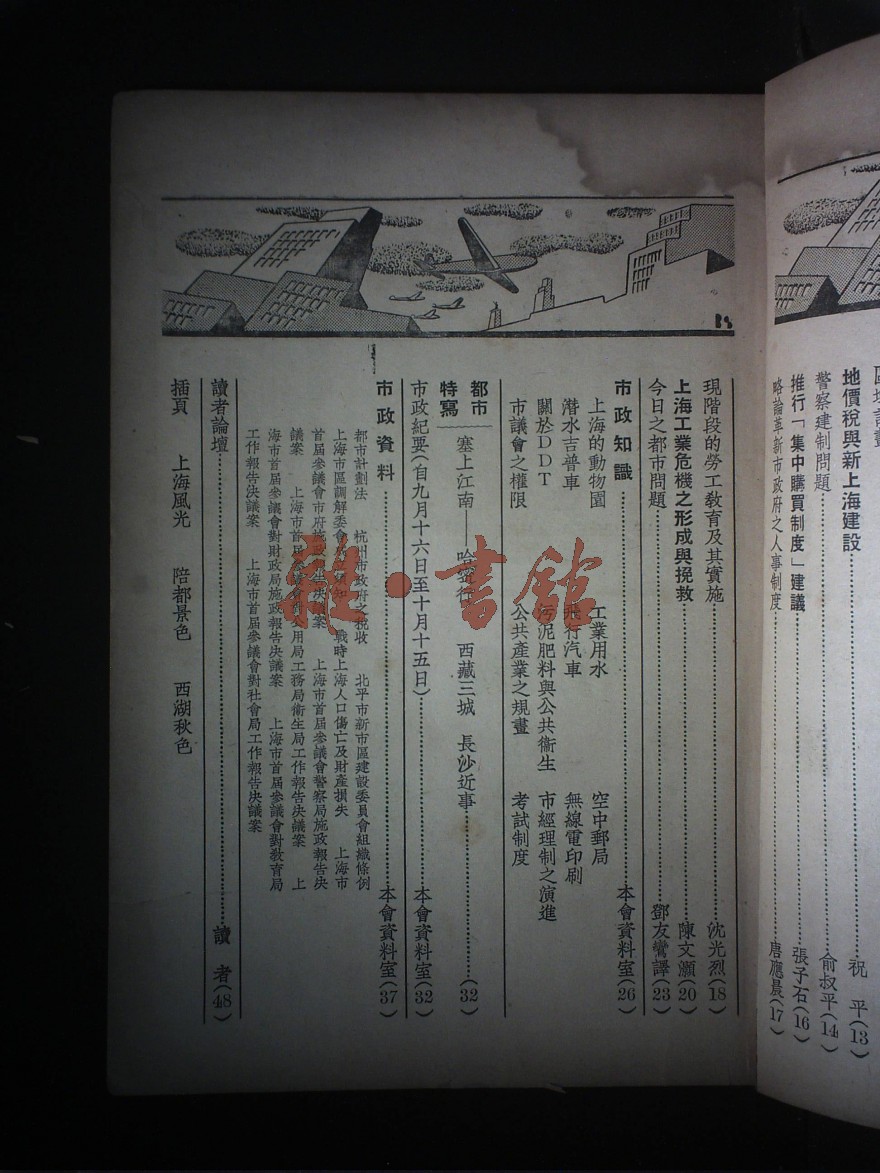 地價稅與新上海建設 祝 平(13)
警察建制問題 俞叔平(14)
推行「集中購買制度」建議 張子石(16)
略論革新市政府之人事制度 唐應晨(17)
現階段的勞工教育及其實施 沈光烈(18)
上海工業危機之形成與挽救 陳文灝(20)
今日之都市問題 鄧友鸞譯(23)
市政知識 本會資料室(26)
上海的動物園 工業用水 空中郵局
潛水吉普車 飛行汽車 無線電印刷
關於DDT 污泥肥料與公共衞生 市經理制之演進
市議會之權限 公共產業之規畫 考試制度
都市特寫
塞上江南——哈密行 西藏三城 長沙近事 (32)
市政紀要(自九月十六日至十月十五日) 本會資料室(32)
市政資料 本會資料室(37)
都市計劃法 杭州市政府之稅收 北平市新市區建設委員會組織條例
上海市區調解委會成立須知 戰時上海人口傷亡及財產損失 上海市
首屆參議會市府施政報告決議案 上海市首屆參議會警察局施政報告決
議案 上海市首屆參議會對公用局工務局衞生局工作報告決議案 上
海市首屆參議會對財政局施政報告決議案 上海市首屆參議會對教育局
工作報告決議案 上海市首屆參議會對社會局工作報告決議案
讀者論壇 讀 者(48)
插頁 上海風光 陪都景色 西湖秋色
·書館